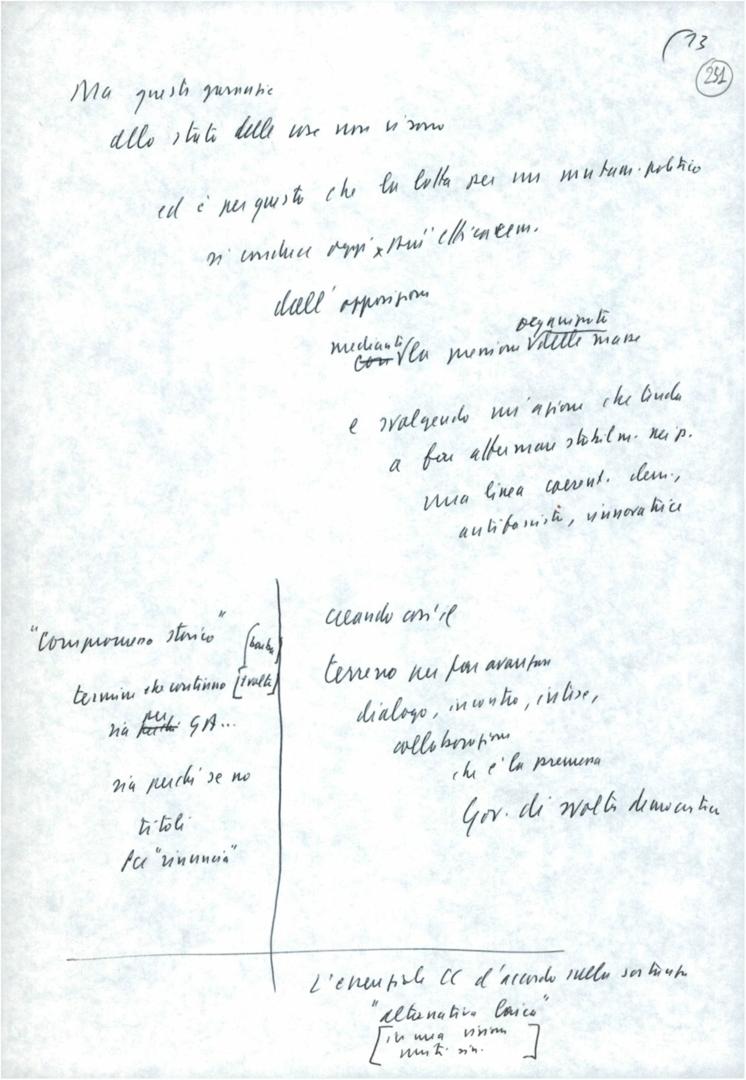 13
251
Ma queste garanzie
allo stato delle cose non vi sono
ed è per questo che la lotta per un mutam. politico
si conduce oggi più efficacem.
dall'opposizione
mediante la pressione organizzata delle masse
e svolgendo un'azione che tenda
a fare affermare stabilm. nei p.
una linea coerent. dem.,
antifascista, rinnovatrice
creando così il
terreno per fare avanzare
dialogo, incontro, intese,
collaborazione
che è la premessa
Gov. di svolta democratica
"Compromesso storico"
termine che continuo [svolta]
sia per GA...
sia perché se no
titoli
PCI "rinuncia"
L'essenziale CC d'accordo sulla sostanza
"alternativa laica"
[in una visione
unit. sin.]